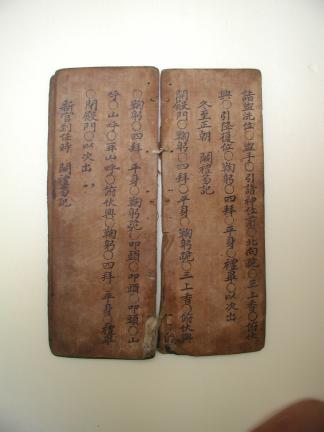 詣盥洗位○盥手○引詣神位前○北向跪○三上香○俯伏
興○引降復位○鞠躬○四拜○平身○禮畢○以次出
冬至正朝　闕禮笏記
開殿門○鞠躬○四拜○平身○鞠躬跪○三上香○俯伏興
○鞠躬○四拜○平身○鞠躬跪○叩頭○叩頭○叩頭○山
呼○山呼○再山呼○俯伏興○鞠躬○四拜○平身○禮畢
○閉殿門○以次出
新官到任時　闕禮笏記